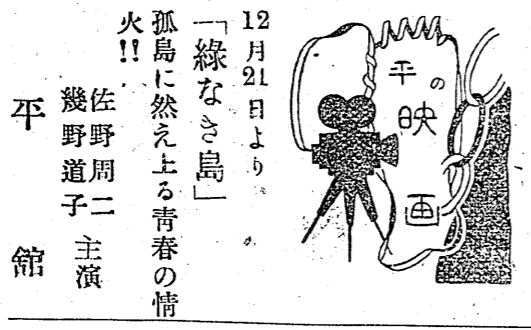 平の映画
12月21日より
「綠なき島」
孤島に然え上る青春の情
火!!
佐野周二
幾野道子
主演
平舘